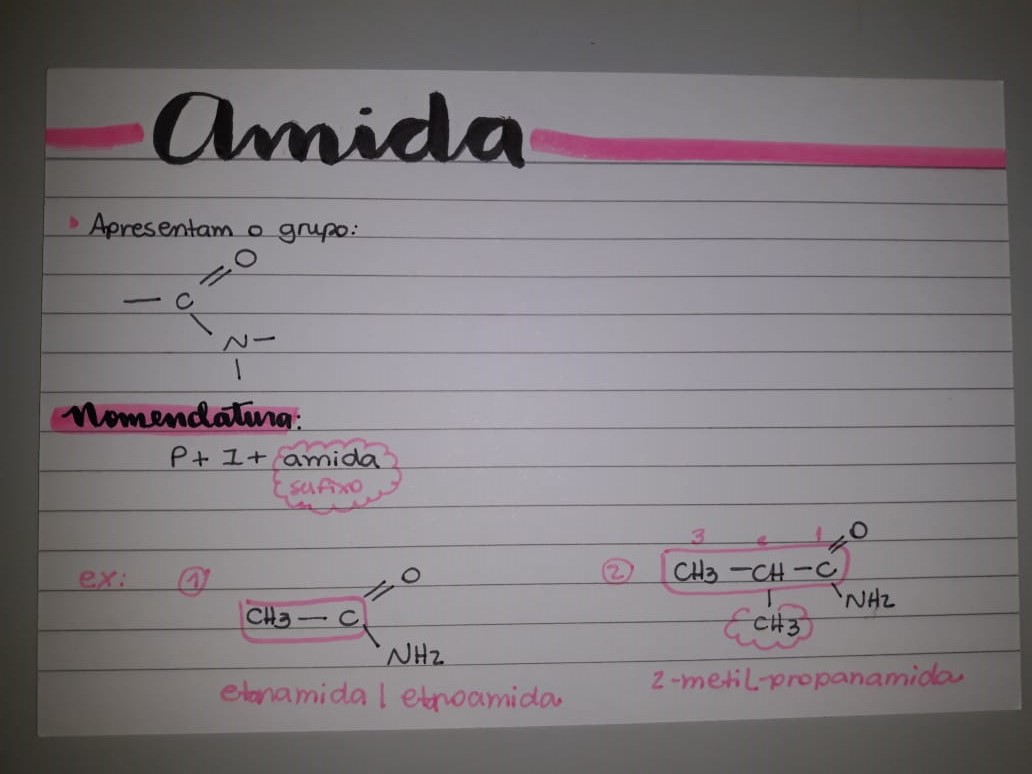 Amida
Apresentam o grupo:
O
— C
N —
Nomenclatura:
P + I + amida
sufixo
ex: 1
CH3 — C
O
NH2
etanamida / etanoamida
2
3 2 1
O
CH3 — CH — C
NH2
CH3
2-metil-propanamida